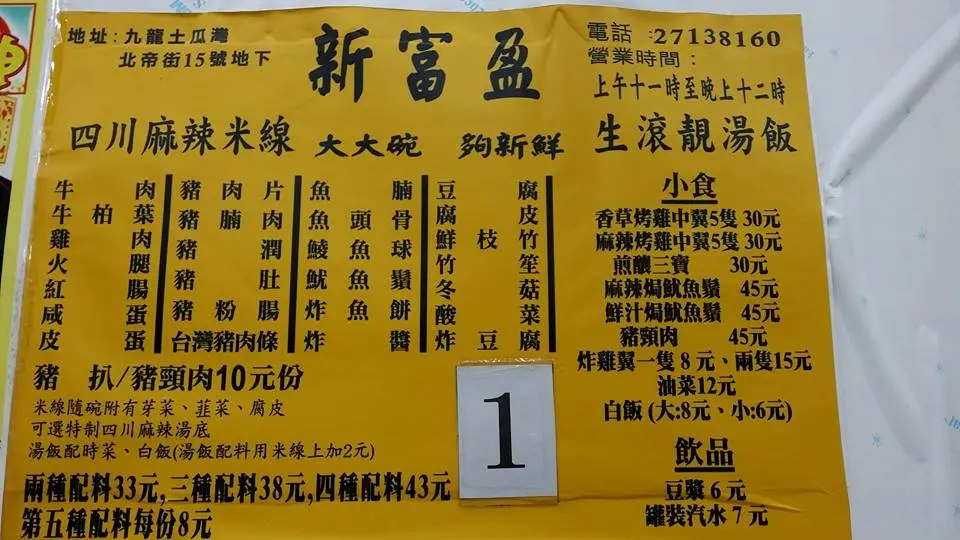 地址:九龍土瓜灣
北帝街15號地下
新富盈
電話:27138160
營業時間:
上午十一時至晚上十二時
四川麻辣米線 大大碗 夠新鮮 生滾靚湯飯
牛肉
牛柏葉
雞肉
火腿
紅腸
咸蛋
皮蛋
豬肉片
豬腩肉
豬潤
豬肚
豬粉腸
台灣豬肉條
魚腩
魚頭骨
鯪魚球
魷魚鬚
炸魚餅
炸醬
豆腐
腐皮
鮮枝竹
竹笙
冬菇
酸菜
炸豆腐
豬扒/豬頸肉10元份
米線隨碗附有芽菜、韮菜、腐皮
可選特制四川麻辣湯底
湯飯配時菜、白飯(湯飯配料用米線上加2元)
兩種配料33元,三種配料38元,四種配料43元
第五種配料每份8元
1
小食
香草烤雞中翼5隻 30元
麻辣烤雞中翼5隻 30元
煎釀三寶 30元
麻辣焗魷魚鬚 45元
鮮汁焗魷魚鬚 45元
豬頸肉 45元
炸雞翼一隻8元、兩隻15元
油菜12元
白飯(大:8元、小:6元)
飲品
豆漿6元
罐裝汽水7元